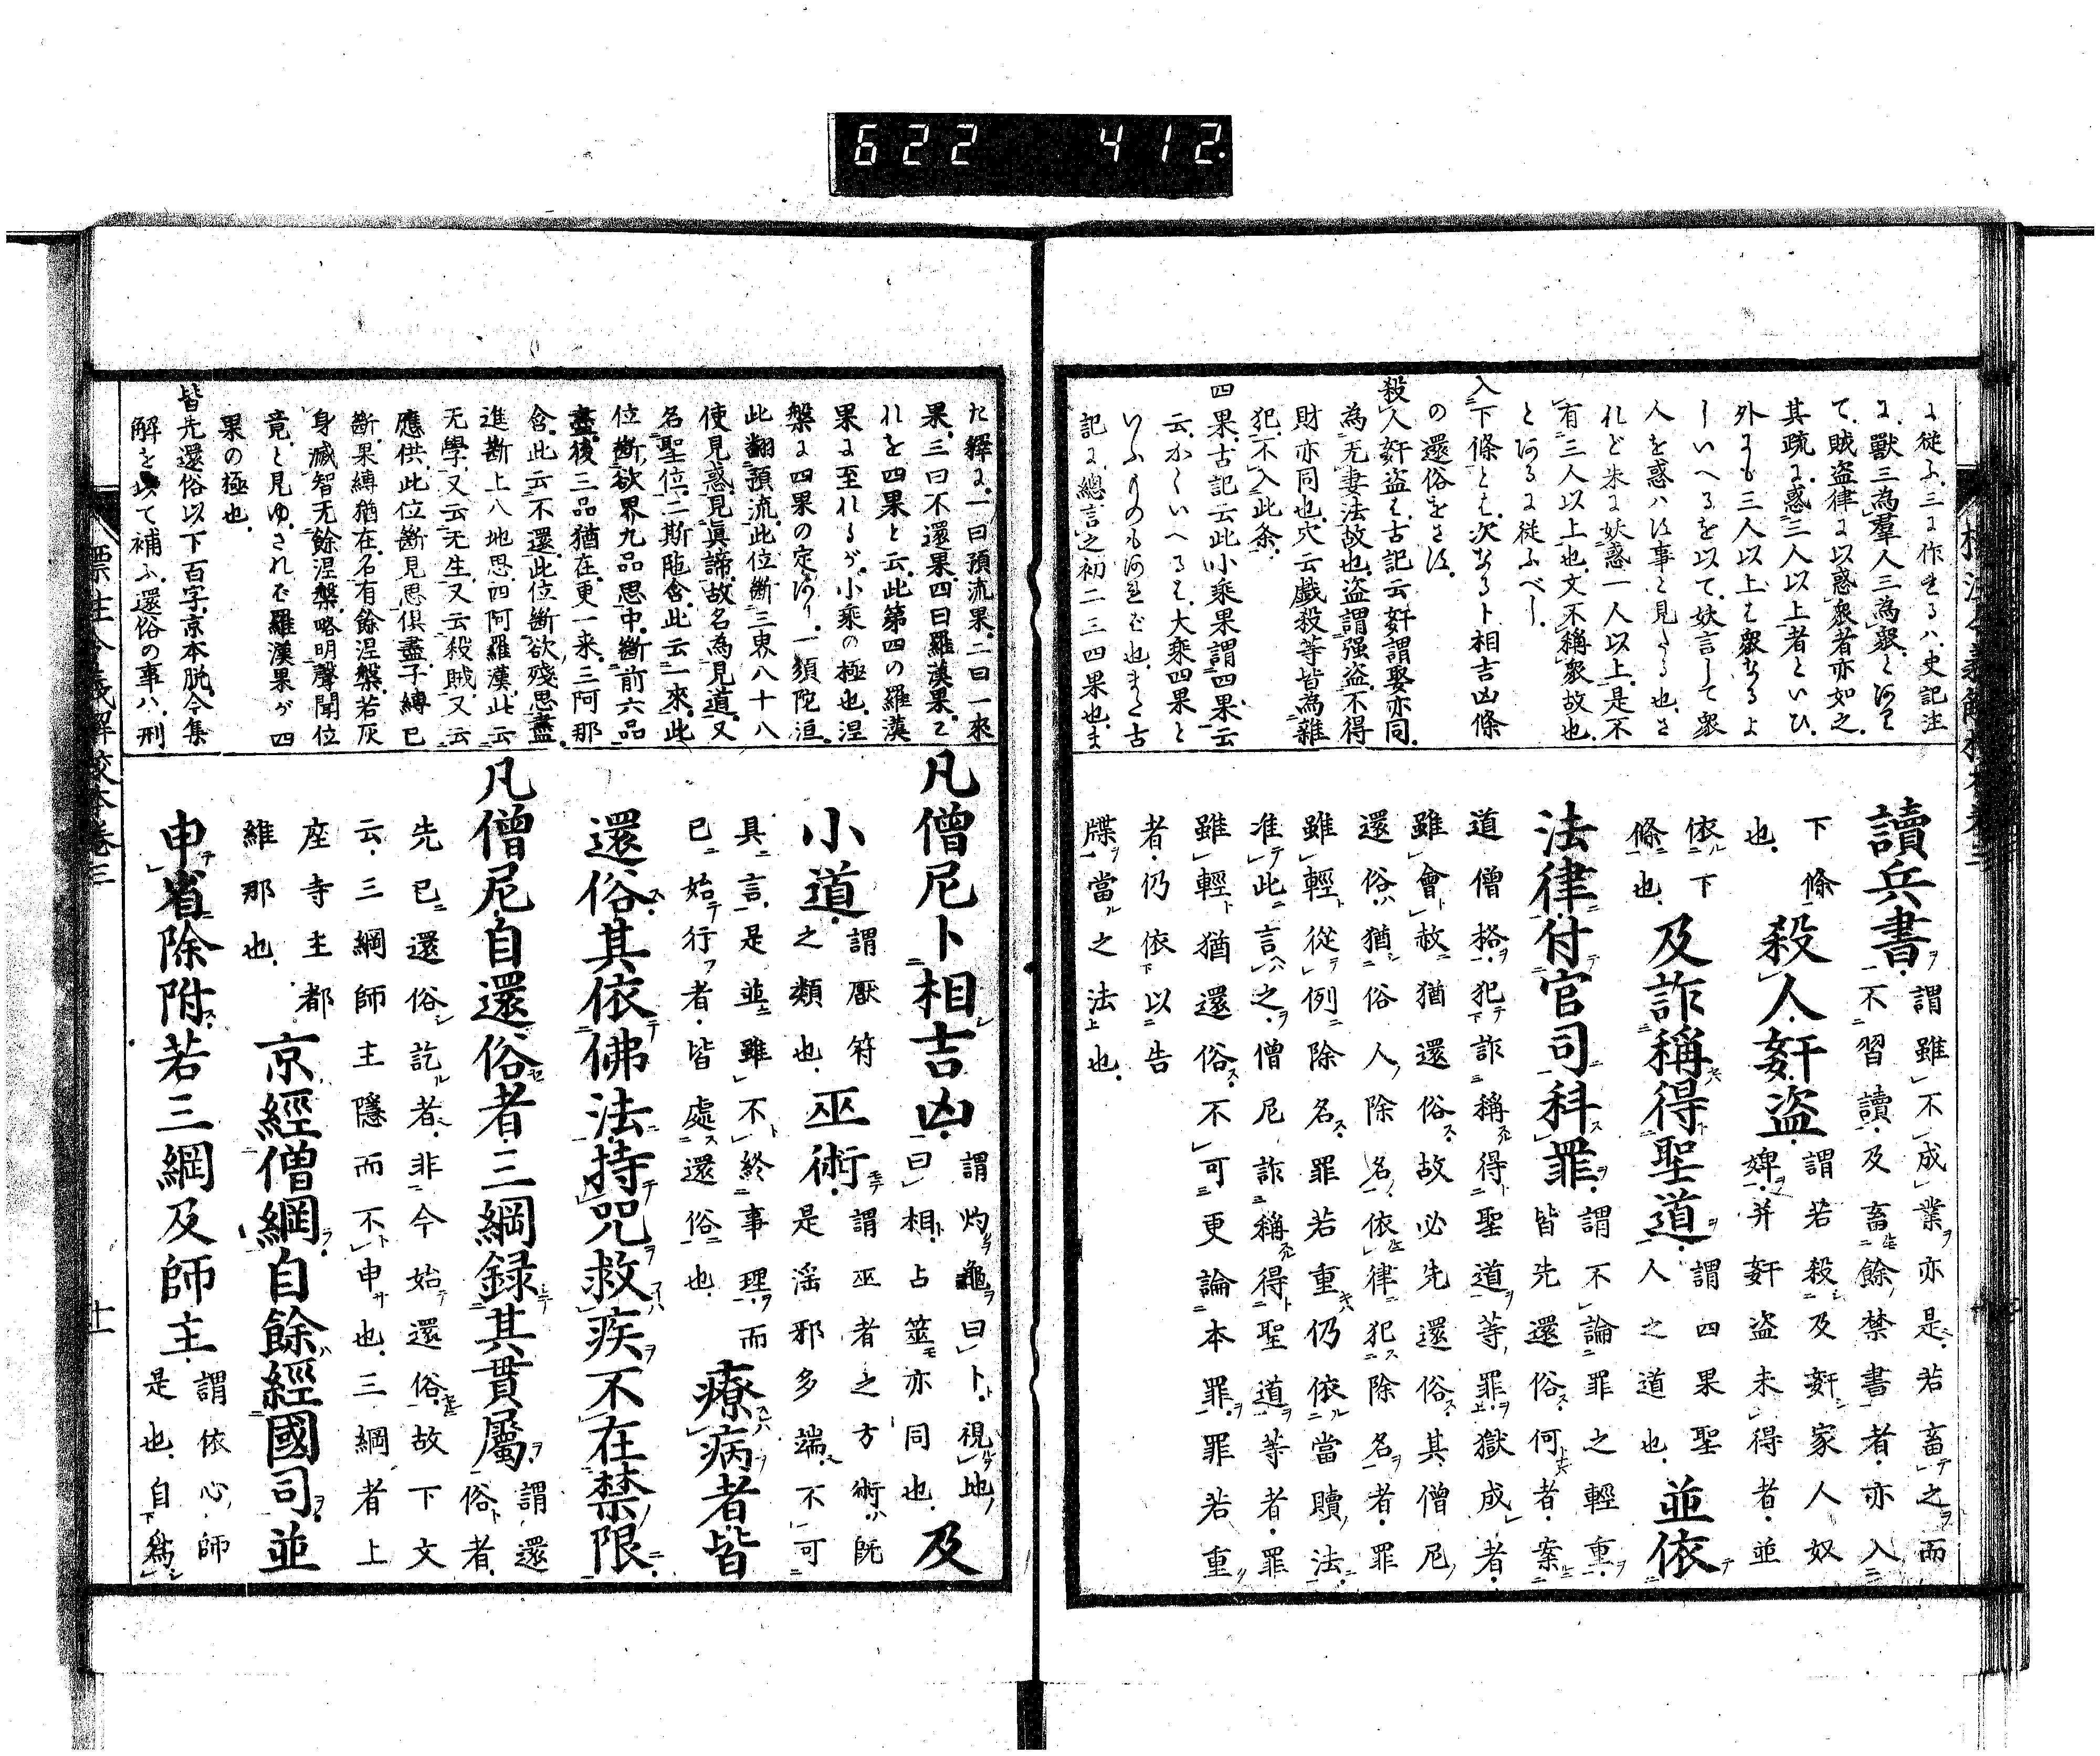 622 412.
に従ふ、三に作れるハ、史記注
に、獸三為羣人三為衆、とあり
て、賊盗律に以惑衆者亦如之、
其疏に、惑三人以上者といひ、
外にも三人以上を衆なるよ
しいへるを以て、妖言して衆
人を惑ハす事と見たる也、さ
れど朱に妖惑一人以上、是不
有三人以上也、文不稱衆故也、
とあるに従ふべし、
入下條とは、次なる卜相吉凶條
の還俗をさす、
殺人奸盗は、古記云奸謂娶亦同、
為无妻法故也、盗謂强盗、不得
財亦同也、穴云戯殺等皆為雜
犯、不入此条、
四果、古記云此小乘果、謂四果、云
云、かくいへるは、大乘四果と
いふものもあれど也、また古
記に、總言之初二三四果也、ま
讀兵書、
謂雖不成業、亦是、若畜之而
不習讀、及畜餘禁書者、亦入
下條
也、
殺人奸盗、
謂若殺及姧家人奴
婢、并奸盗未得者、並
依下
條也、
及詐稱得聖道、
謂四果聖
人之道也、
並依
法律付官司科罪、
謂不論罪之輕重、
皆先還俗、何者、案
道僧格、犯詐稱得聖道等罪、獄成者、
雖會赦猶還俗、故必先還俗、其僧尼
還俗、猶俗人除名、依律犯除名者、罪
雖輕從例除名、罪若重仍依當贖法、
准此言之、僧尼詐稱得聖道等者、罪
雖輕猶還俗、不可更論本罪、罪若重
者、仍依以告
牒當之法也、
た釋に、一曰預流果、二曰一來
果、三曰不還果、四曰羅漢果、こ
れを四果と云、此第四の羅漢
果に至れるが、小乘の極也、涅
槃に四果の定あり、一須陀洹、
此翻預流、此位斷三界八十八
使見惑、見眞諦、故名為見道、又
名聖位、二斯陁含、此云一來、此
位斷欲界九品思中、斷前六品
盡、後三品猶在、更一来、三阿那
含、此云不還、此位斷欲殘思盡、
進斷上八地思、四阿羅漢、此云
无學、又云无生、又云殺賊、又云
應供、此位斷見思俱盡、子縛已
斷、果縛猶在、名有餘涅槃、若灰
身滅智无餘涅槃、略明聲聞位
竟、と見ゆ、されど羅漢果が四
果の極也、
皆先還俗以下百字、京本脱、令集
解を以て補ふ、還俗の事ハ、刑
凡僧尼卜相吉凶、
謂灼龜曰卜、視地
曰相、占筮亦同也、
及
小道、
謂厭符
之類也、
巫術、
謂巫者之方術、既
是淫邪多端、不可
具言、是並雖不終事理、而
已始行者、皆處還俗也、
療病者、皆
還俗、其依佛法持咒救疾、不在禁限、
凡僧尼自還俗者、三綱録其貫屬、
謂還
俗者、
先已還俗訖者、非今始還俗、故下文
云、三綱師主隱而不申也、三綱者上
座寺主都
維那也、
京經僧綱、自餘經國司、並
申省除附、若三綱及師主、
謂依心師
是也、自為
標注令義解校本卷三
十一